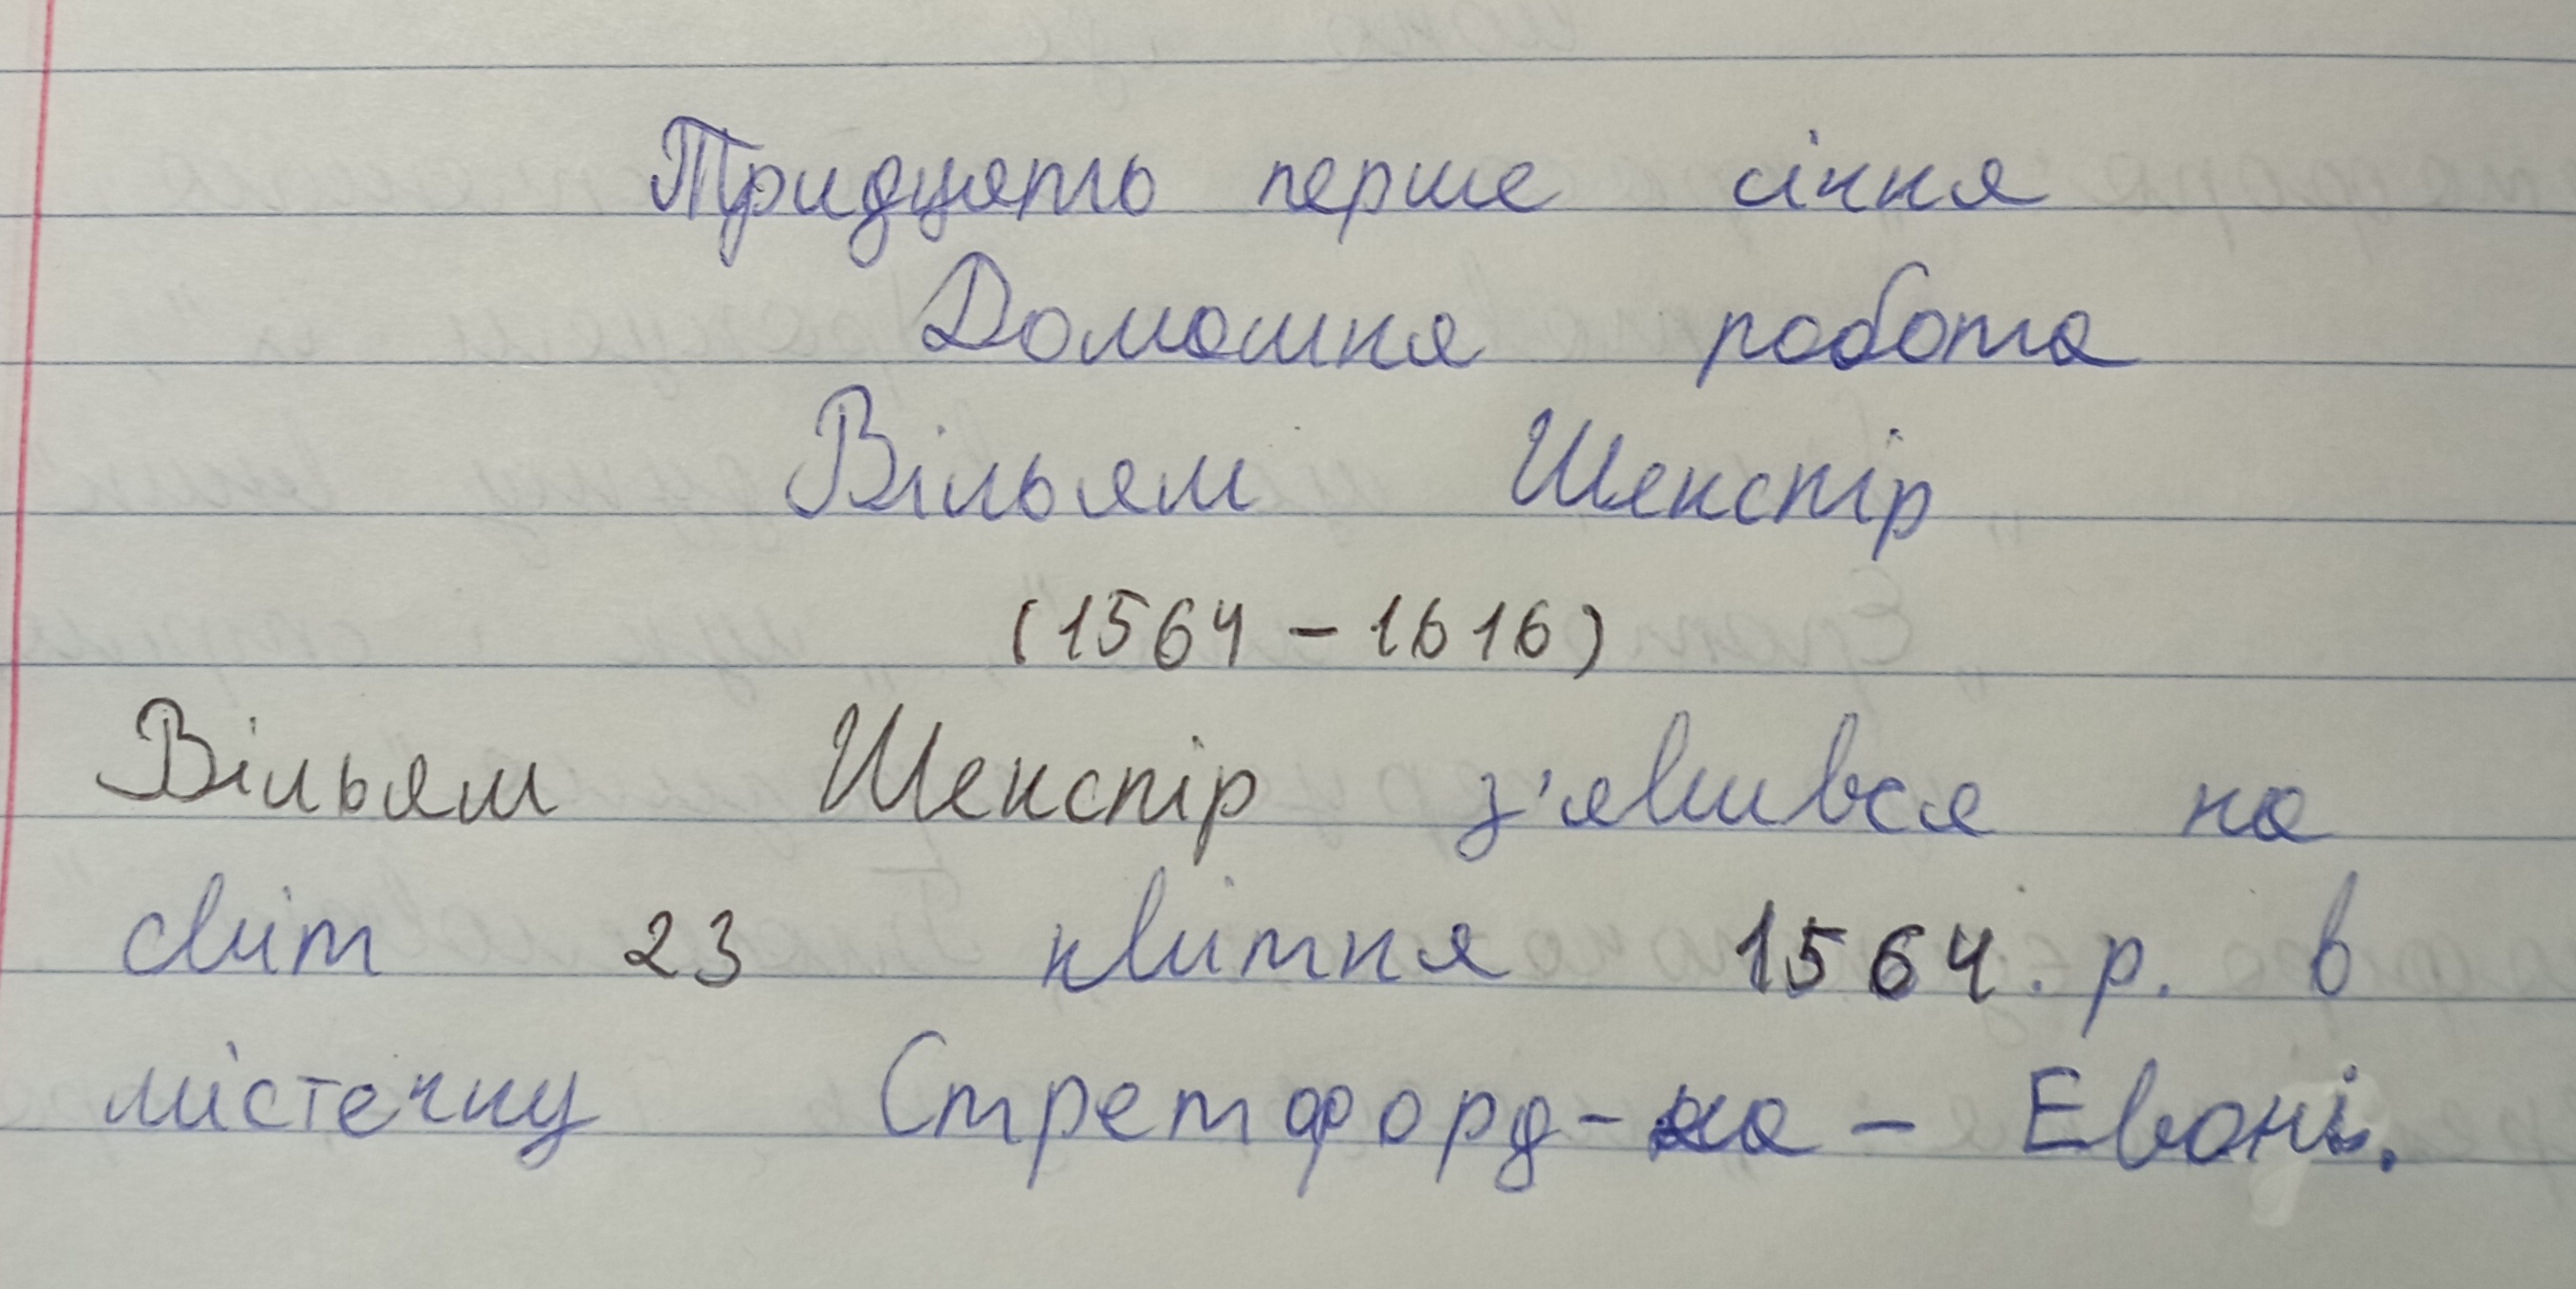 Тридцять перше січня
Домашня робота
Вільям Шекспір
(1564 – 1616)
Вільям Шекспір з'явився на
світ 23 квітня 1564. р. в
містечку Стретфорд-на – Евоні.